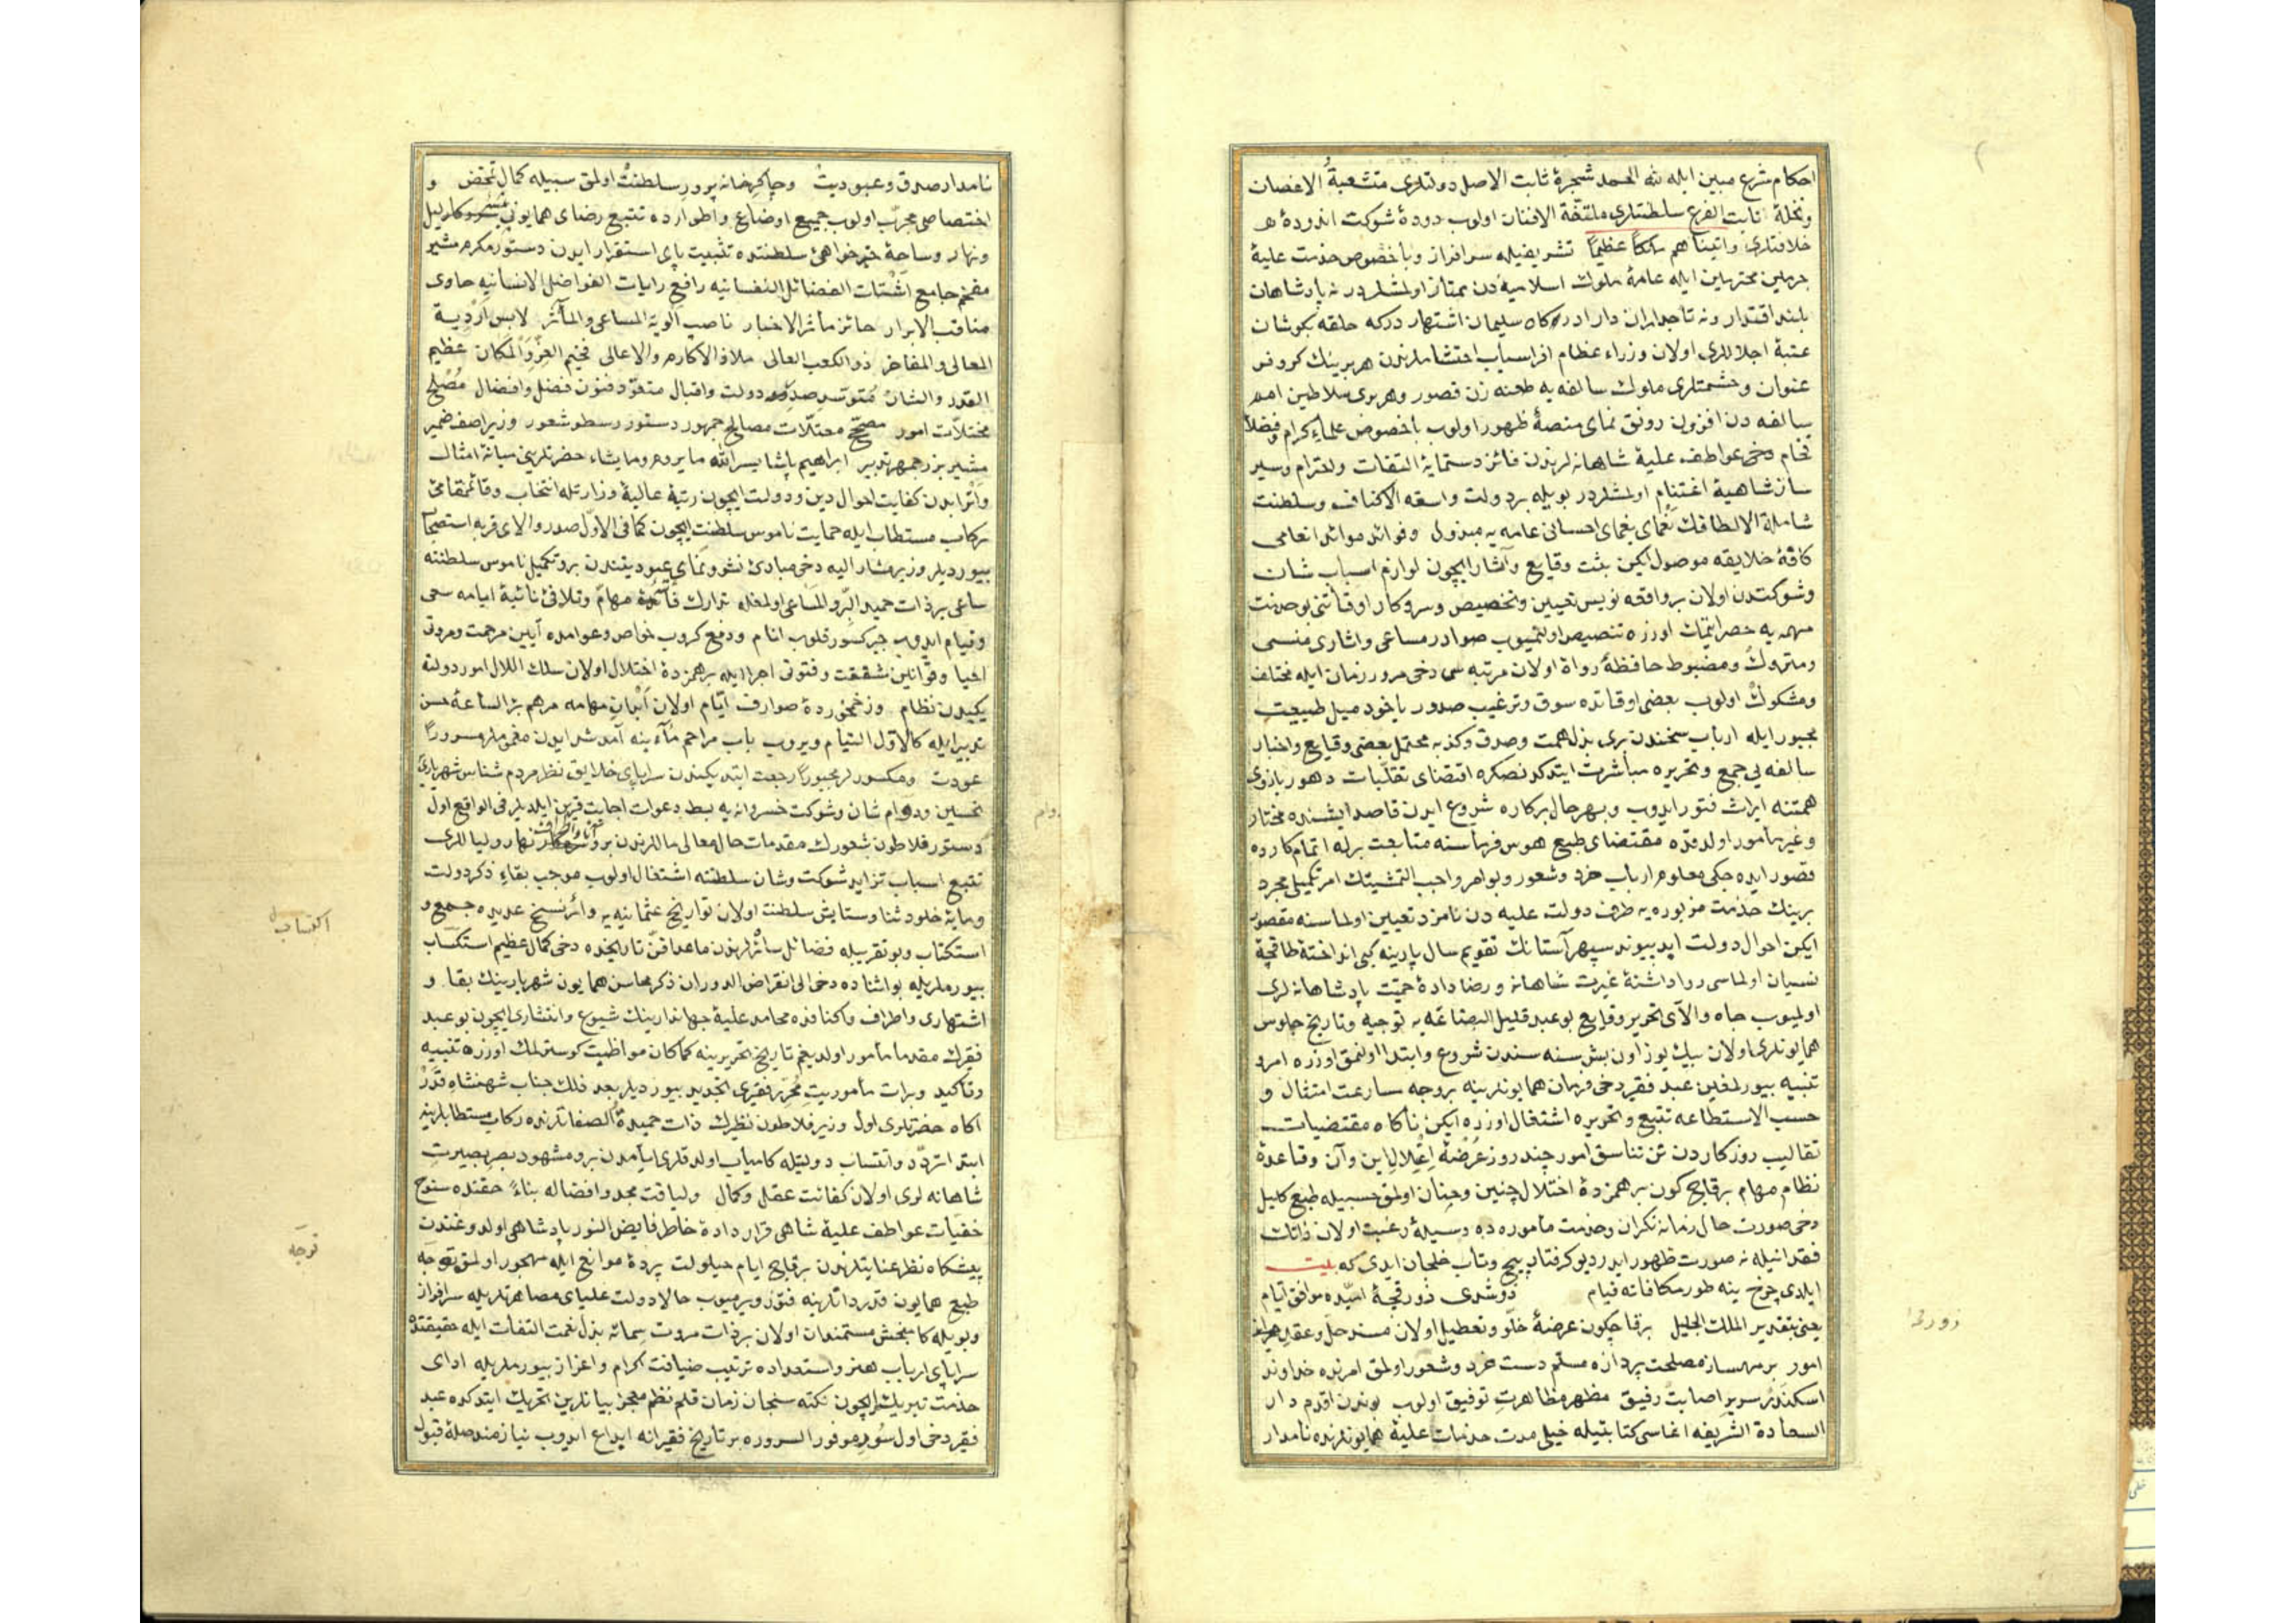 احكام شرع مبین ایله لله الحمد شجرهٔ ثابت الاصل دولتلری متشعبة الاغصان
ونخلهٔ ثابت الفرع سلطنتلری ملتفّة الافنان اولوب دودهٔ شوكت اندودهٔ
خلافتلری واتیناهم ملكاً عظیماً تشریفیله سرافراز وباخصوص خدمت علیهٔ
حرمین محترمین ایله عامهٔ ملوك اسلامیه‌دن ممتاز اولمشلردر نه پادشاهان
بلند اقتدار ونه تاجداران دارا دركاه سلیمان اشتهار دركه حلقه بكوشان
عتبهٔ اجلاللری اولان وزراء عظام افراسیاب احتشاملرندن هر برینك كروفر
عنوان وحشمتلری ملوك سالفه‌یه طعنه زن قصور وهر بری سلاطین امم
سالفه‌دن افزون رونق نمای منصهٔ ظهور اولوب باخصوص علماء كرام وفضلاء
فخام دخی عواطف علیهٔ شاهانه‌لرندن فائز دستمایهٔ التفات واحترام وسیر
ساز شاهیهٔ اغتنام اولمشلردر بویله بر دولت واسعه الاكناف وسلطنت
شاملة الالطافك نعمای یغمای احسانی عامه‌یه مبذول وفوائد موائد انعامی
كافهٔ خلایقه موصول ایكن بثت وقایع وآثار ایچون لوازم اسباب شان
وشوكتدن اولان بر واقعه نویس تعیین وتخصیص وسروكار اوقاتنی بو خدمت
مهمه‌یه حصر ایتمك اوزره تنصیص اولنمیوب صوادر مساعی واثاری منسی
ومتروك ومضبوط حافظهٔ رواة اولان مرتبه‌سی دخی مرور زمان ایله مختلف
ومشكوك اولوب بعضی اوقاتده سوق وترغیب صدور یاخود میل طبیعت
مجبور ایله ارباب سخندن بری بذل همت وصدق وكذبه محتمل بعضی وقایع واخبار
سالفه‌یی جمع وتحریره مباشرت ایتدكدنصكره اقتضای تقلبات دهور بازوی
همتنه ایراث فتور ایدوب وبهر حال بر كاره شروع ایدن قاصد ایشنده مختار
وغیر مأمور اولدقده مقتضای طبع هوس فرماسنه متابعت برله اتمام كارده
قصور ایده‌جكی معلوم ارباب خرد وشعور وبو امر واجب التمشیتك امر تكمیلی مجرد
برینك خدمت مزبوره‌یه طرف دولت علیه‌دن نامزد تعیین اولماسنه مقصور
ایكن احوال دولت ابد پیوند سپهر آستانك تقویم سال پارینه كبی انداختهٔ طاقچهٔ
نسیان اولماسی روا داشتهٔ غیرت شاهانه ورضا دادهٔ حمیّت پادشاهانه‌لری
اولمیوب جاه والای تحریر وقایع بو عبد قلیل البضاعه‌یه توجیه وتاریخ جلوس
همایونلری اولان بیك یوز اون بش سنه‌سندن شروع وابتدا اولنمق اوزره امر
تنبیه بیورلمغین عبد فقیر دخی فرمان همایونلرینه بر وجه سارعت امتثال و
حسب الاستطاعه تتبع وتحریره اشتغال اوزره ایكن ناكاه مقتضیات
تقالیب روزكاردن تن تناسق امور چند روز عرضهٔ اعلال این وآن وقاعدهٔ
نظام مهام برقاچ كون بر همزدهٔ اختلال چنین وچنان اولمق حسبیله طبع كلیل
دخی صورت حال زمانه نكران وخدمت مأموره‌ده وسیلهٔ رغبت اولان ذاتك
فقدانیله نه صورت ظهور ایدر دیو كرفتار پیچ وتاب خلجان ایدی كه بیت
ایلدی چرخ ینه طور مكافاته قیام دوشدی زورقچهٔ امیده موافق ایام
یعنی بتقدیر الملك الجلیل برقاچكون عرضهٔ خلو وتعطیل اولان مسند حل وعقد
امور بر مهمساز مصلحت پردازه مسلم دست خرد وشعور اولمق امرنده خداوند
اسكندر سریر اصابت رفیق مظهر مظاهرت توفیق اولوب بوندن اقدم دار
السعادة الشریفه اغاسی كتابتیله خیلی مدت خدمات علیهٔ همایونلرنده نامدار
زورقچه
نامدار صدق وعبودیت وچاكر خانه پرور سلطنت اولمق سبیله كمال تمحض و
اختصاصی مجرّب اولوب جمیع اوضاع واطوارده تتبع رضای همایونی لیل
ونهار وساحهٔ خیرخواهیٔ سلطنتده تثبیت پای استقرار ایدن دستور مكرم مشیر
مفخم جامع اشتات الفضائل النفسانیه رافع رایات الفواضل الانسانیه حاوی
مناقب الابرار حائز مآثر الاخیار ناصب الویة المساعی والمآثر لابس اردیة
المعالی والمفاخر ذو الكعب العالی ملاذ الاكارم والاعالی فخیم العزّ والمكان عظیم
القدر والشان متوسد صدر دولت واقبال متعوّد فنون فضل وافضال مصلح
مختلات امور مصحّح معتلات مصالح جمهور دستور رسطو شعور وزیر اصف ضمیر
مشیر بزرجمهر تدبیر ابراهیم پاشا یسر الله ما یروم وما یشاء حضرتلرینی میانهٔ امثال
واقرانندن كفایت احوال دین ودولت ایچون رتبهٔ عالیهٔ وزارتله انتخاب وقائمقامیٔ
ركاب مستطاب ایله حمایت ناموس سلطنت ایچون كما فی الاول صدر والای قربه استصحاب
بیوردیلر وزیر مشار الیه دخی مبادیٔ نشو ونمای عبودیتندن برو تكمیل ناموس سلطنته
ساعی بر ذات حمید البرّ والمساعی اولمغله تدارك مهامّ وتلافیٔ نائبهٔ ایامه سعی
وقیام ایدوب جبر كسور قلوب انام ودفع كروب خواص وعوامده آیین مرحمت ومروتی
احیا وقوانین شفقت وفتوتی اجرا ایله برهمزدهٔ اختلال اولان سلك اللال امور دولته
یكیدن نظام وزخمخوردهٔ صوارف ایّام اولان ابدان مهامه مرهم برء الساعهٔ حسن
تدبیر ایله كالاول التیام ویروب باب مراحم مآبینه آمد شد ایدن مغموملر مسروراً
عودت ومكسورلر مجبوراً رجعت ایتدیكندن سراپای خلایق نظر مردم شناس شهریاریٔ
تحسین ودوام شان وشوكت خسروانه‌یه بسط دعوات اجابت قرین ایلدیلر فی الواقع اول
دستور فلاطون شعورك مقدمات حال معالی ماللرندن برو نهار ولیاللری
تتبع اسباب تزاید شوكت وشان سلطنته اشتغال اولوب موجب بقاء ذكر دولت
ومایهٔ خلود ثنا وستایش سلطنت اولان تواریخ عثمانیه‌یه دائر نسخ عدیده جمع و
استكتاب وبو تقریبله فضائل سائره‌لرندن ماعدا فنّ تاریخده دخی كمال عظیم استكساب
بیورملریله بو اثناده دخی الی انقراض الدوران ذكر محاسن همایون شهریارینك بقا و
اشتهاری واطراف واكنافده محامد علیهٔ جهاندارینك شیوع وانتشاری ایچون بو عبد
فقیرك مقدما مأمور اولدیغم تاریخ تحریرینه كما كان مواظبت كوسترلمك اوزره تنبیه
وتأكید وبرات مأموریت محرّر فقیری تجدید بیوردیلر بعد ذلك جناب شهنشاه قدر
آكاه حضرتلری اول وزیر فلاطون نظیرك ذات حمیدة الصفاتلرنده ركاب مستطابلرینه
ابتدا تردّد وانتساب دولتیله كامیاب اولدقلری ایامدن برو مشهود بصر بصیرت
شاهانه‌لری اولان كفانت عقل وكمال ولیاقت مجد وافضاله بناءً حقنده سنوح
خفیّات عواطف علیهٔ شاهی قرار دادهٔ خاطر فایض النور پادشاهی اولدوغندن
پیشكاه نظر عنایتلرندن برقاچ ایام حیلولت پردهٔ موانع ایله مهجور اولمق توجه
طبع همایون قدردانلرینه فتور ویرمیوب حالا دولت علیای مصاهرتلریله سرافراز
وبویله كامبخش مستمندان اولان بر ذات مروت سماته بذل نعمت التفات ایله حقیقتده
سراپای ارباب هنر واستعداده ترتیب ضیافت اكرام واعزاز بیورملریله ادای
خدمت تبریك ایچون نكته سنجان زمان قلم نظم معجز بیانلرین تحریك ایتدكده عبد
فقیر دخی اول سور موفور السروره بر تاریخ فقیرانه ابداع ایدوب نیازمند صلهٔ قبول
اكتساب
توجه